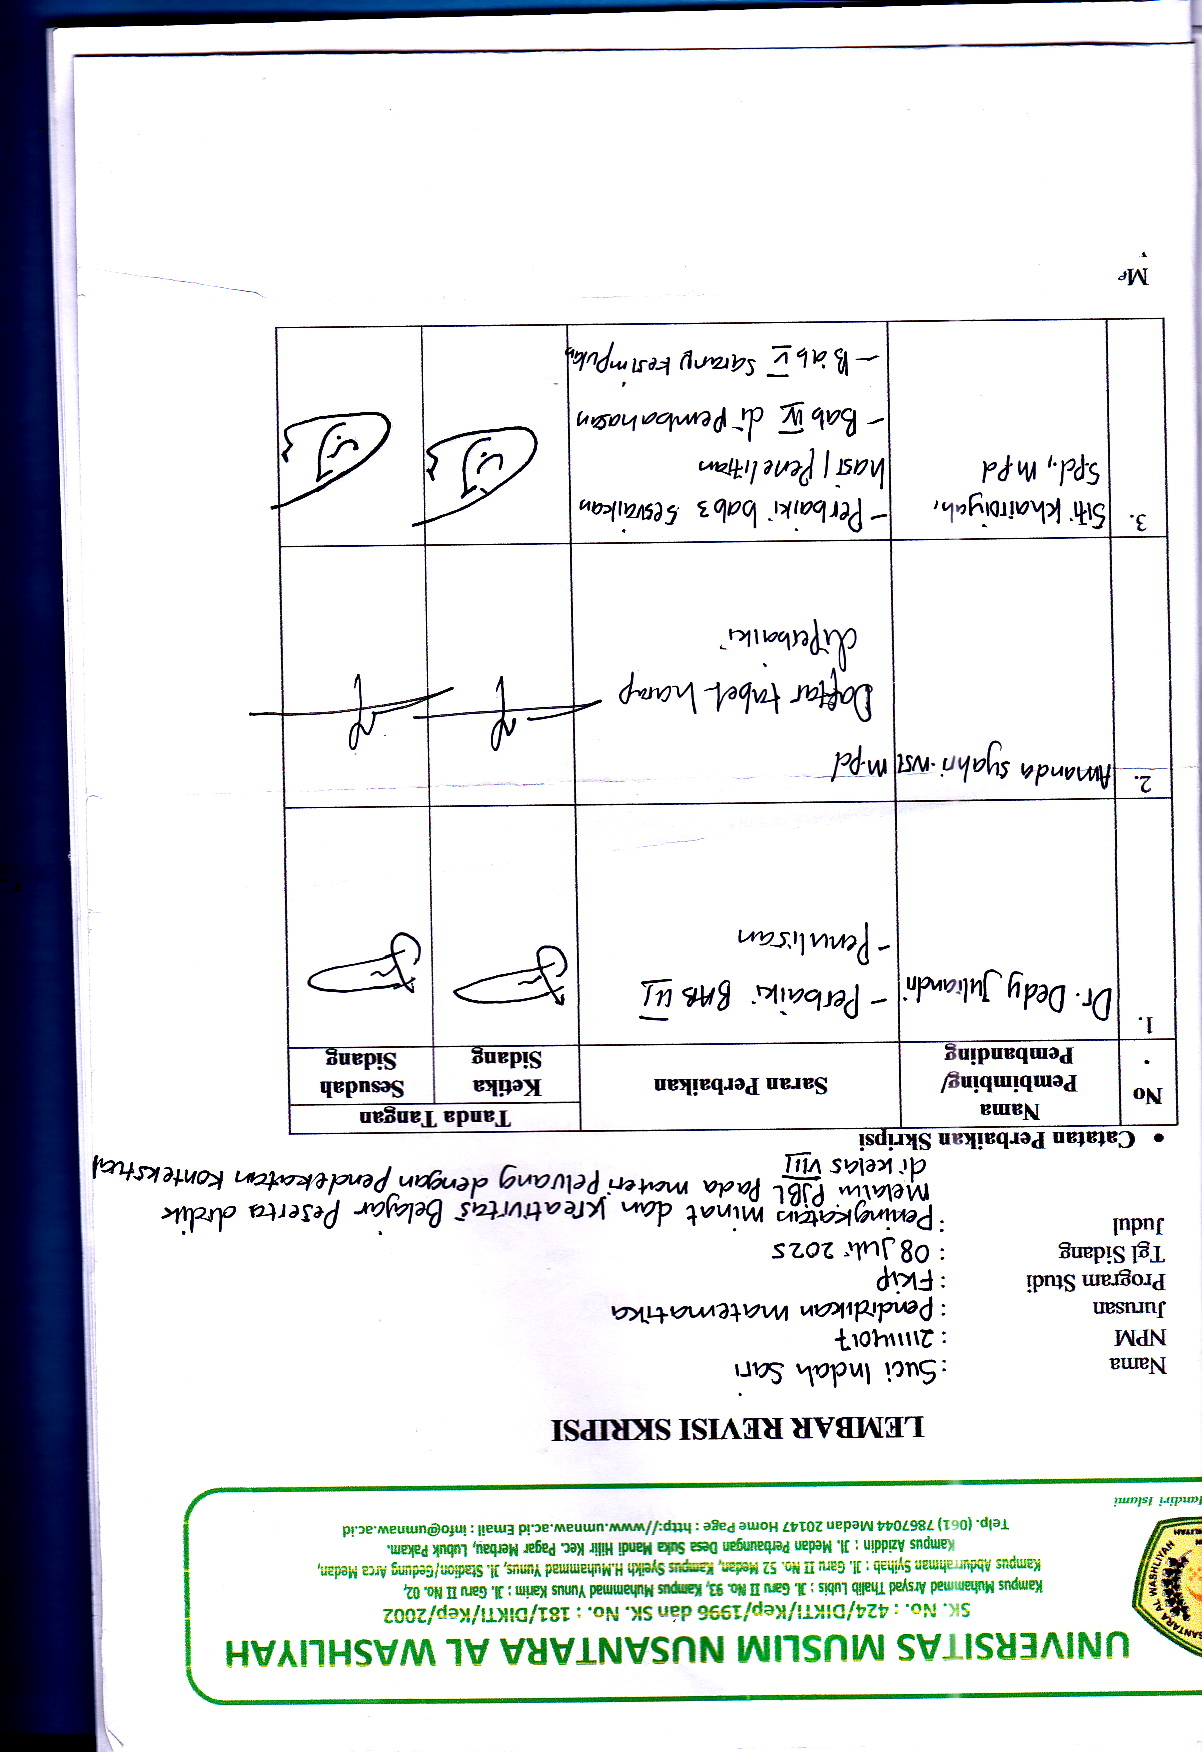 UNIVERSITAS MUSLIM NUSANTARA AL WASHLIYAH
SK. No. : 424/DIKTI/Kep/1996 dan SK. No. : 181/DIKTI/Kep/2002
Kampus Muhammad Arsyad Thalib Lubis : Jl. Garu II No. 93, Kampus Muhammad Yunus Karim : Jl. Garu II No. 02,
Kampus Abdurrahman Syihab : Jl. Garu II No. 52 Medan, Kampus Syeikh H.Muhammad Yunus, Jl. Stadion/Gedung Arca Medan,
Kampus Aziddin : Jl. Medan Perbaungan Desa Suka Mandi Hilir Kec. Pagar Merbau, Lubuk Pakam.
Telp. (061) 7867044 Medan 20147 Home Page : http://www.umnaw.ac.id Email : info@umnaw.ac.id
Mandiri Islami
LEMBAR REVISI SKRIPSI
Nama : Suci Indah Sari
NPM : 211114017
Jurusan : Pendidikan matematika
Program Studi : Fkip
Tgl Sidang : 08 Juli 2025
Judul : Peningkatan minat dan kreativitas Belajar Peserta didik
Melalui PJBL Pada materi Peluang dengan Pendekatan Kontekstual
di kelas VIII
• Catatan Perbaikan Skripsi
No. Nama Pembimbing/ Pembanding Saran Perbaikan Tanda Tangan
Ketika Sidang Sesudah Sidang
1. Dr. Dedy Juliandri - Perbaiki BAB III
- Penulisan
2. Amanda syahri nst M.pd
Daftar tabel harap
diperbaiki
3. Siti Khairiyah, - Perbaiki bab 3 sesuaikan
S.pd., M.pd hasil Penelitian
- Bab IV di Pembahasan
- Bab V saran, kesimpulan